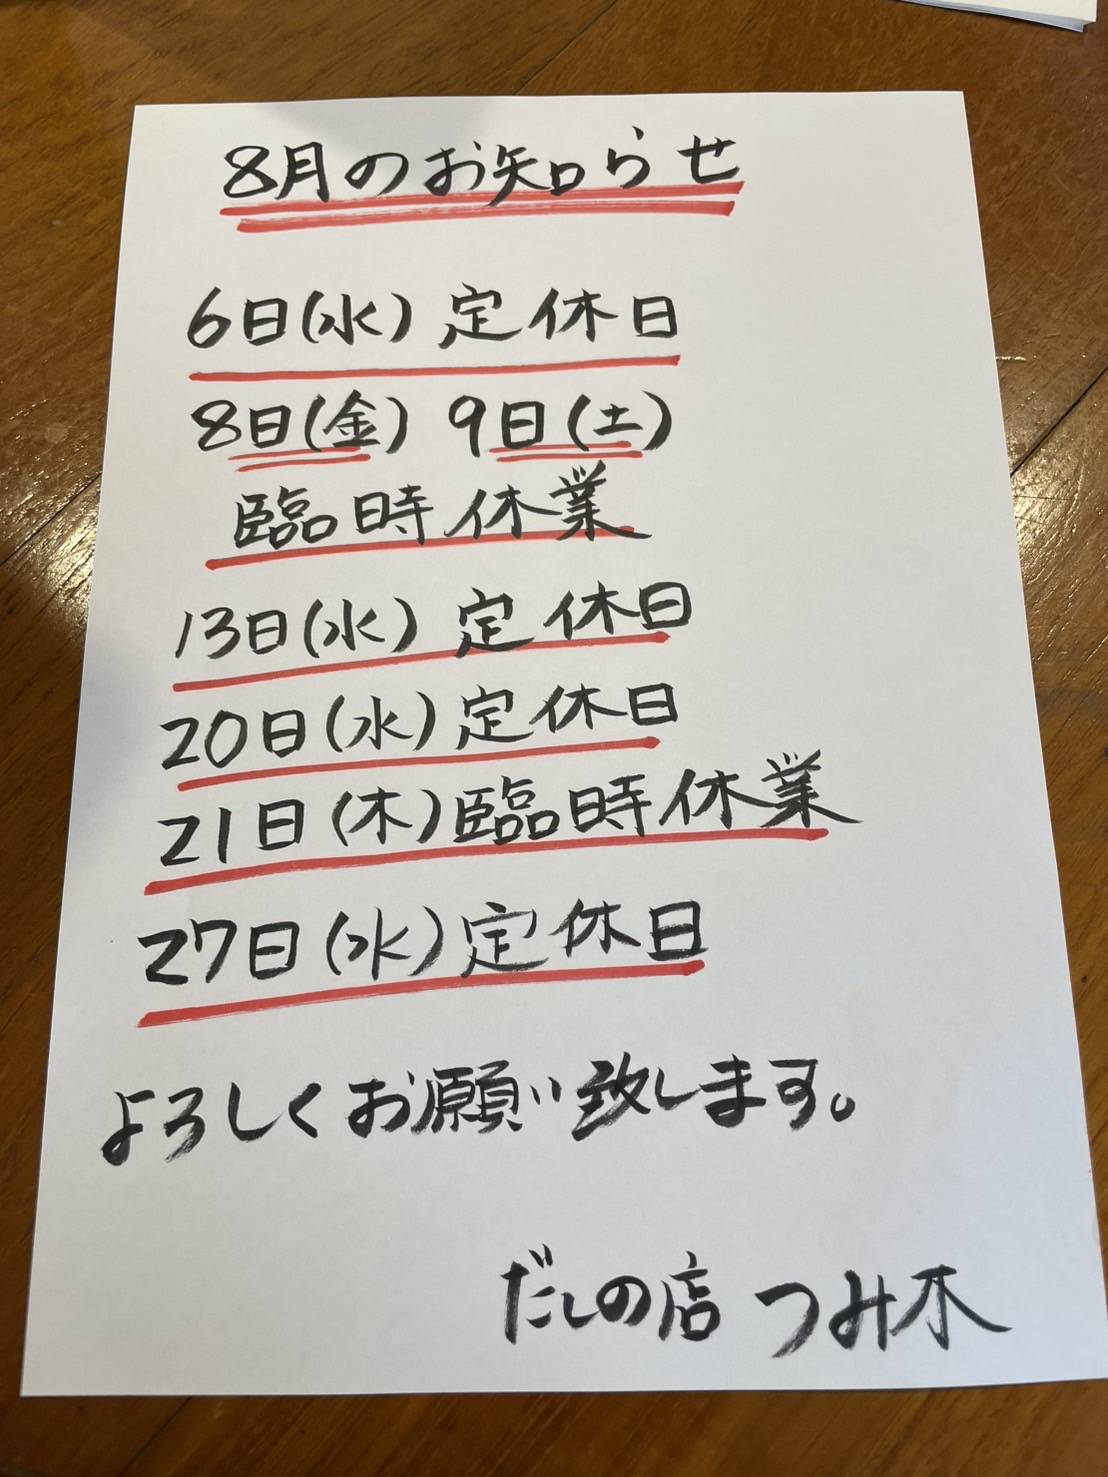 8月のお知らせ
6日(水) 定休日
8日(金) 9日(土)
臨時休業
13日(水) 定休日
20日(水) 定休日
21日(木) 臨時休業
27日(水) 定休日
よろしくお願い致します。
だしの店 つみ木